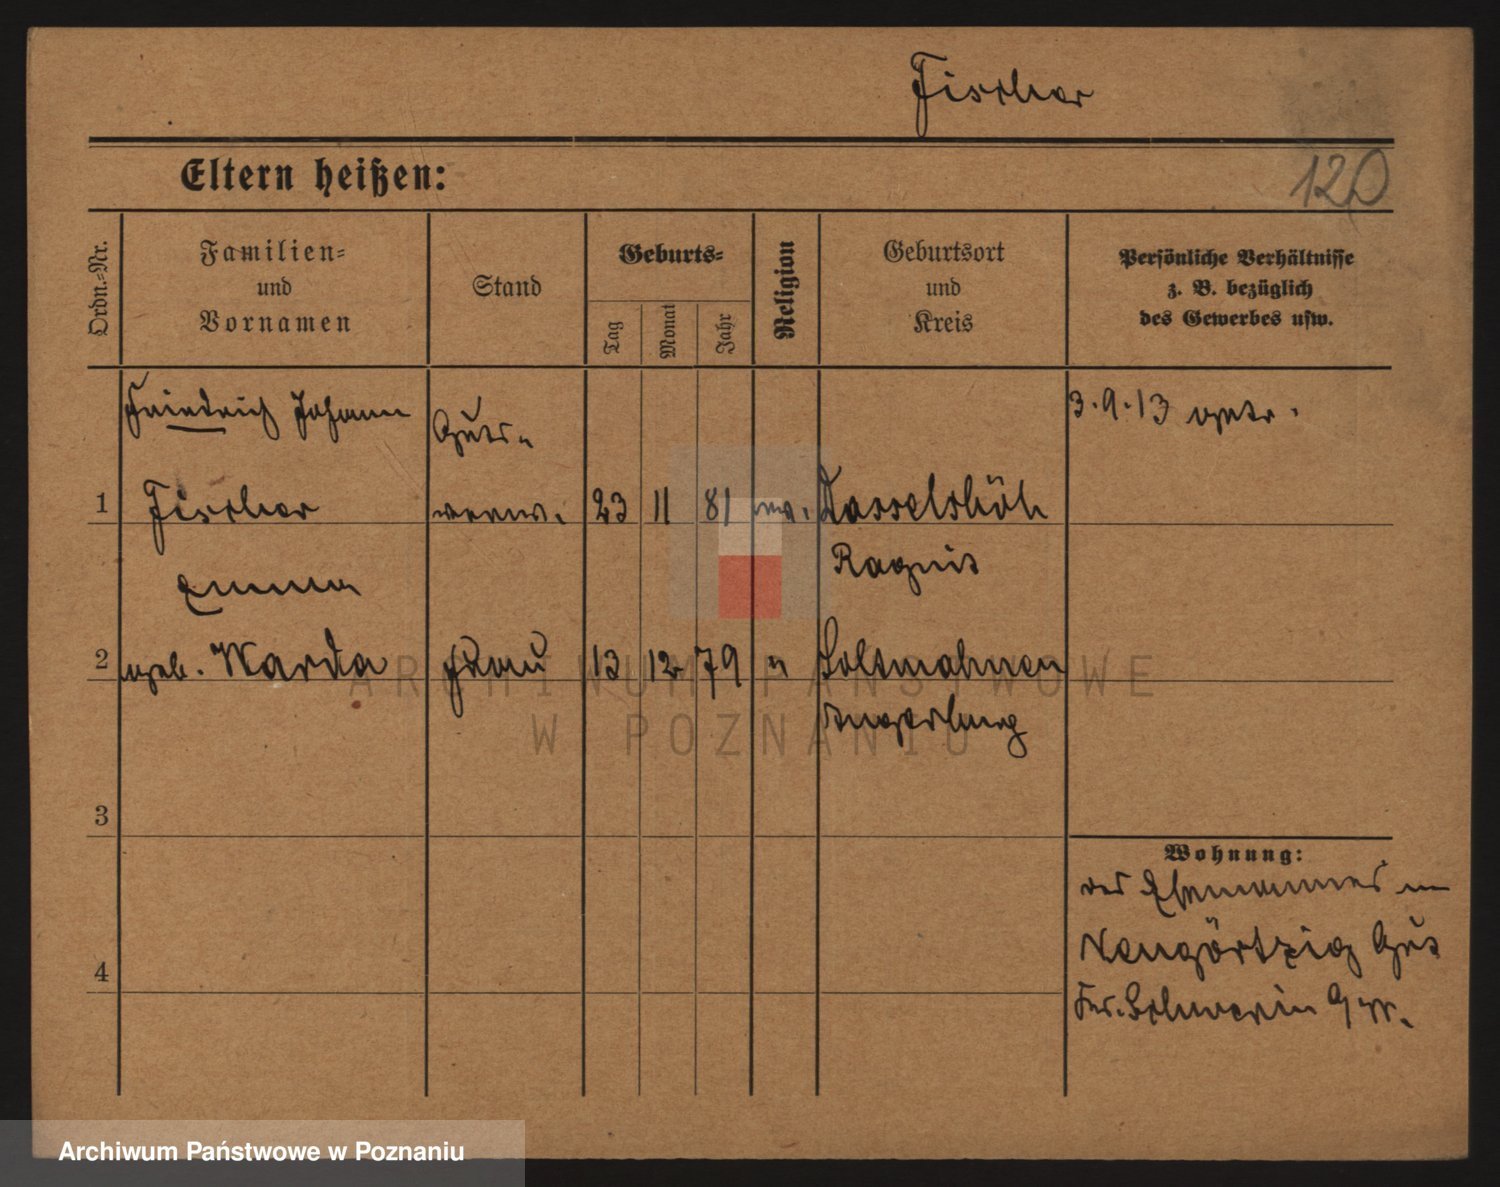 Fischer
Eltern heißen:
120
Ordn.-Nr.
Familien-
und
Vornamen
Stand
Geburts-
Tag
Monat
Jahr
Religion
Geburtsort
und
Kreis
Persönliche Verhältnisse
z. B. bezüglich
des Gewerbes usw.
Friedrich Johann
Guts-
3.9.13
1
Fischer
23 11 81
Kasselshöh
Ragnit
Emma
2
geb. Warda
Frau
13 12 79 "
Soltmahnen
Angerburg
3
Wohnung:
des Ehemannes in
Neugörtzig Gut
Krs. Schwerin
4
ARCHIWUM PAŃSTWOWE
W POZNANIU
Archiwum Państwowe w Poznaniu